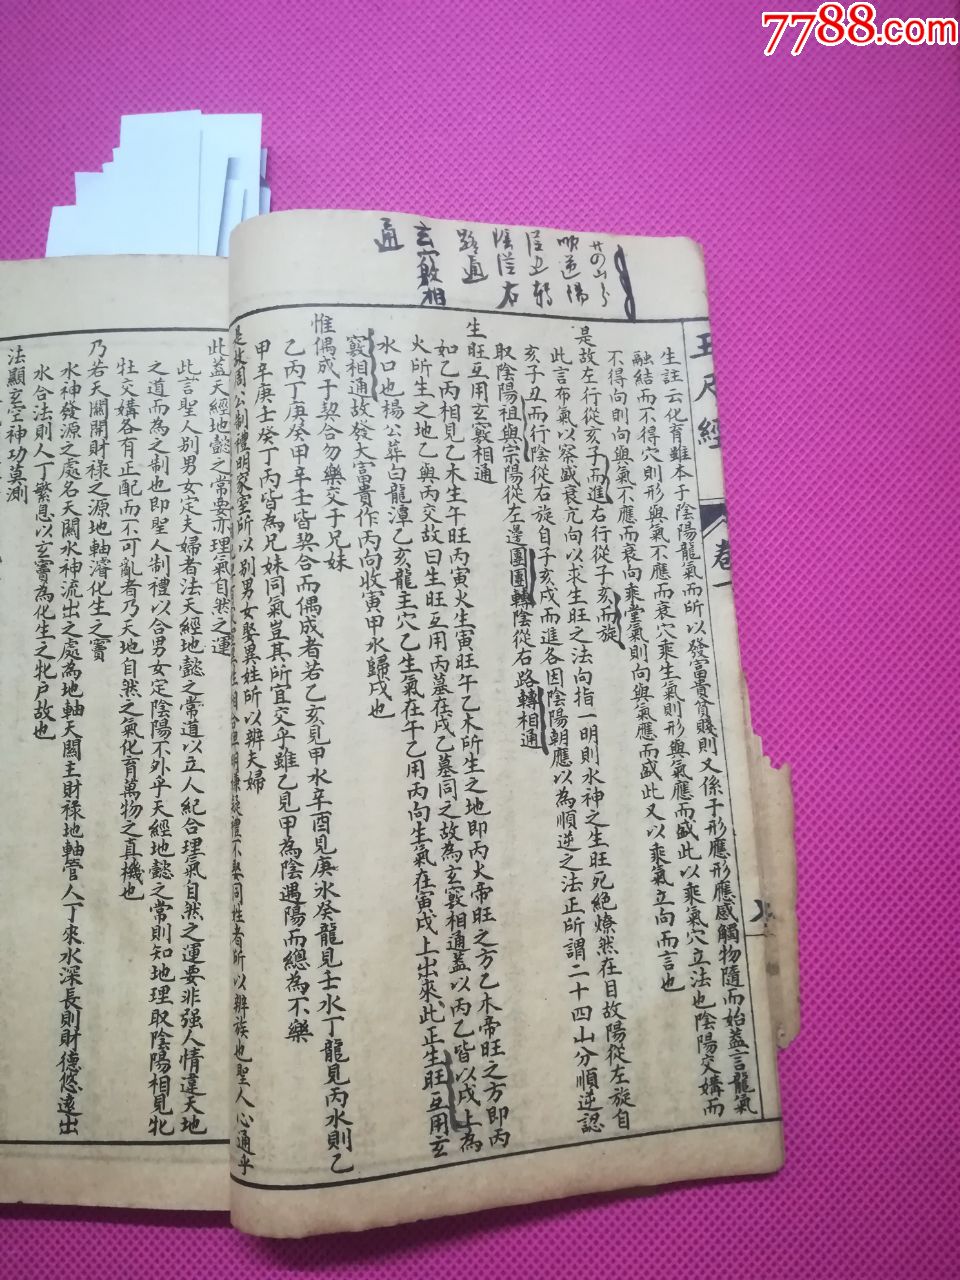 7788.com
廿四山分
順逆陽
從左轉
陰從右
路通
玄竅相
通
玉尺經 卷一
生註云化育雖本于陰陽龍氣而所以發富貴貧賤則又係于形應形應感觸物隨而始益言龍氣
融結而不得穴則形與氣不應而衰穴乘生氣則形與氣應而盛此以乘氣穴立法也陰陽交媾而
不得向則向與氣不應而衰向乘堂氣則向與氣應而盛此又以乘氣立向而言也
是故左行從亥子而進右行從子亥而旋
此言布氣以察盛衰亢向以求生旺之法向指一明則水神之生旺死絕燎然在目故陽從左旋自
亥子丑而行陰從右旋自子亥戌而進各因陰陽朝應以為順逆之法正所謂二十四山分順逆認
取陰陽祖與宗陽從左邊團團轉陰從右路轉相通
生旺互用玄竅相通
如乙丙相見乙木生午旺丙寅火生寅旺午乙木所生之地即丙火帝旺之方乙木帝旺之方即丙
火所生之地乙與丙交故曰生旺互用丙墓在戌乙墓同之故為玄竅相通蓋以丙乙皆以戌上為
水口也楊公葬白龍潭乙亥龍主穴乙生氣在午乙用丙向生氣在寅戌上出來此正生旺互用玄
竅相通故發大富貴作丙向收寅甲水歸戌也
惟偶成于契合勿樂交于兄妹
乙丙丁庚癸甲辛壬皆契合而偶成者若乙亥見甲水辛酉見庚水癸龍見壬水丁龍見丙水則乙
甲辛庚壬癸丁丙皆為兄妹同氣豈其所宜交乎雖乙見甲為陰遇陽而總為不樂
是故周公制禮明家室所以別男女娶異姓所以辨夫婦
此蓋天經地懿之常要亦理氣自然之運
此言聖人別男女定夫婦者法天經地懿之常道以立人紀合理氣自然之運要非强人情違天地
之道而為之制也即聖人制禮以合男女定陰陽不外乎天經地懿之常則知地理取陰陽相見牝
牡交媾各有正配而不可亂者乃天地自然之氣化育萬物之真機也
乃若天關開財祿之源地軸濬化生之竇
水神發源之處名天關水神流出之處為地軸天關主財祿地軸管人丁來水深長則財德悠遠出
水合法則人丁繁息以玄竇為化生之牝戶故也
法顯玄空神功莫測